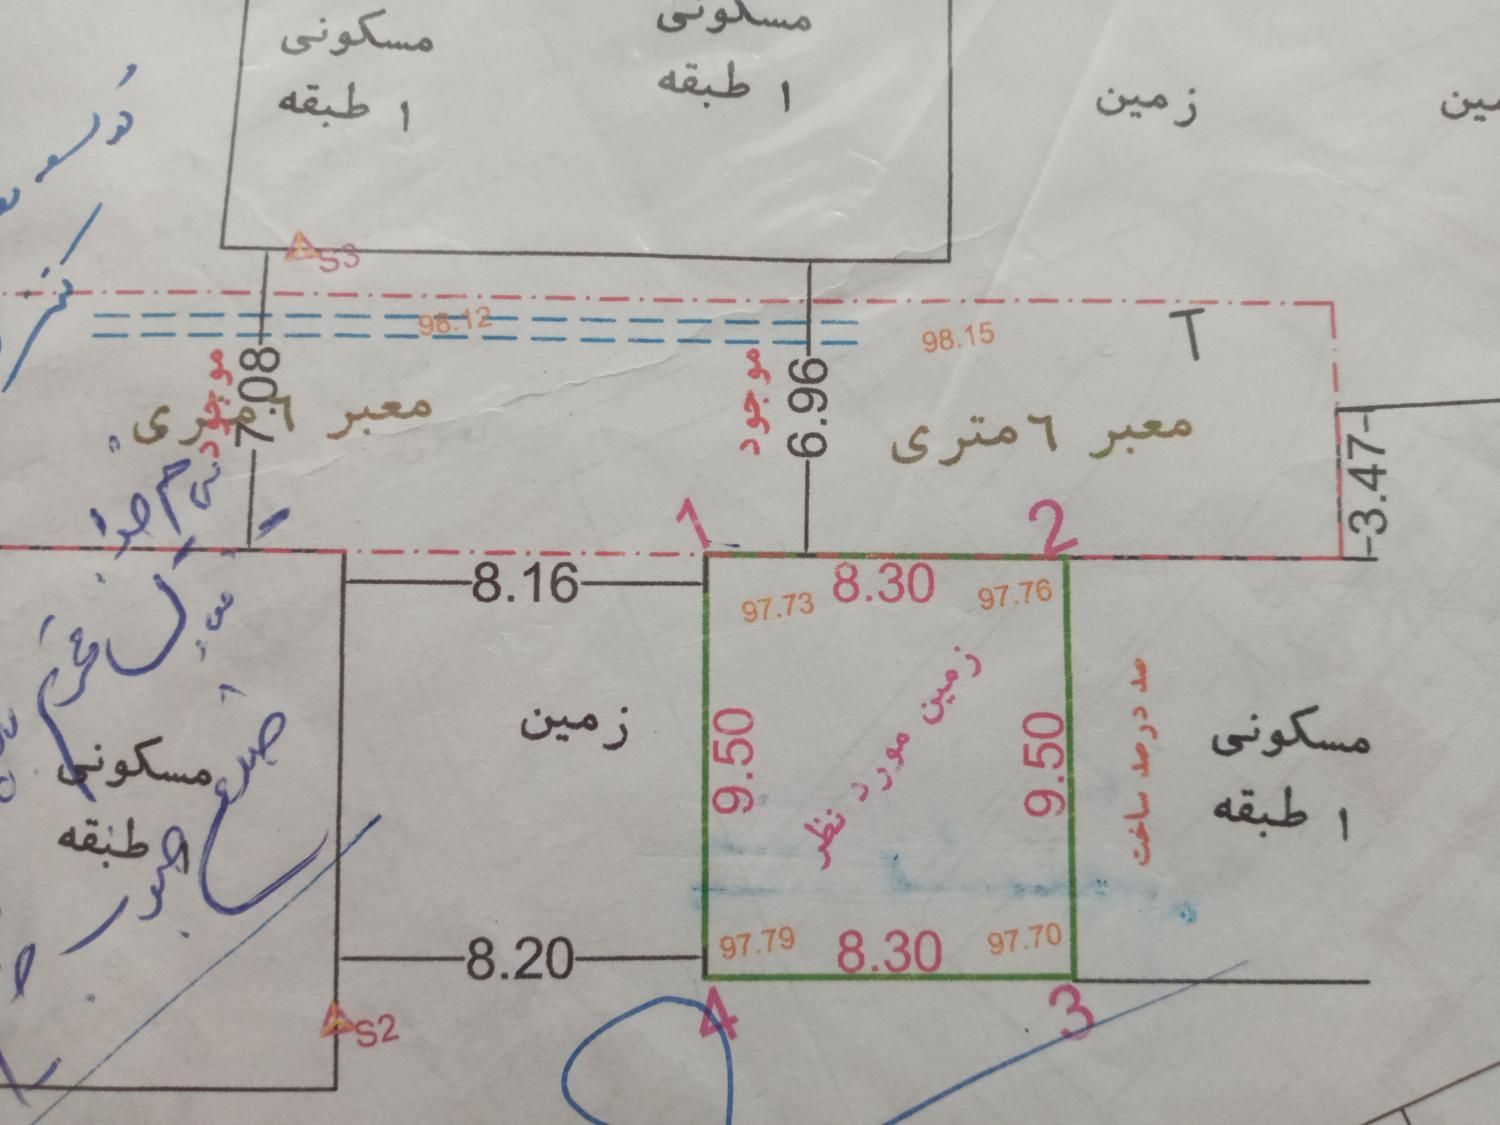 مسکونی
۱ طبقه
مسکونی
۱ طبقه
زمین
S3
98.12
98.15
موجود
7.08
معبر ٦متری
موجود
6.96
معبر ٦متری
3.47
1
2
8.16
8.30
97.73
97.76
زمین
9.50
زمین مورد نظر
9.50
صد درصد ساخت
مسکونی
۱ طبقه
مسکونی
۱ طبقه
8.20
97.79
8.30
97.70
4
3
S2